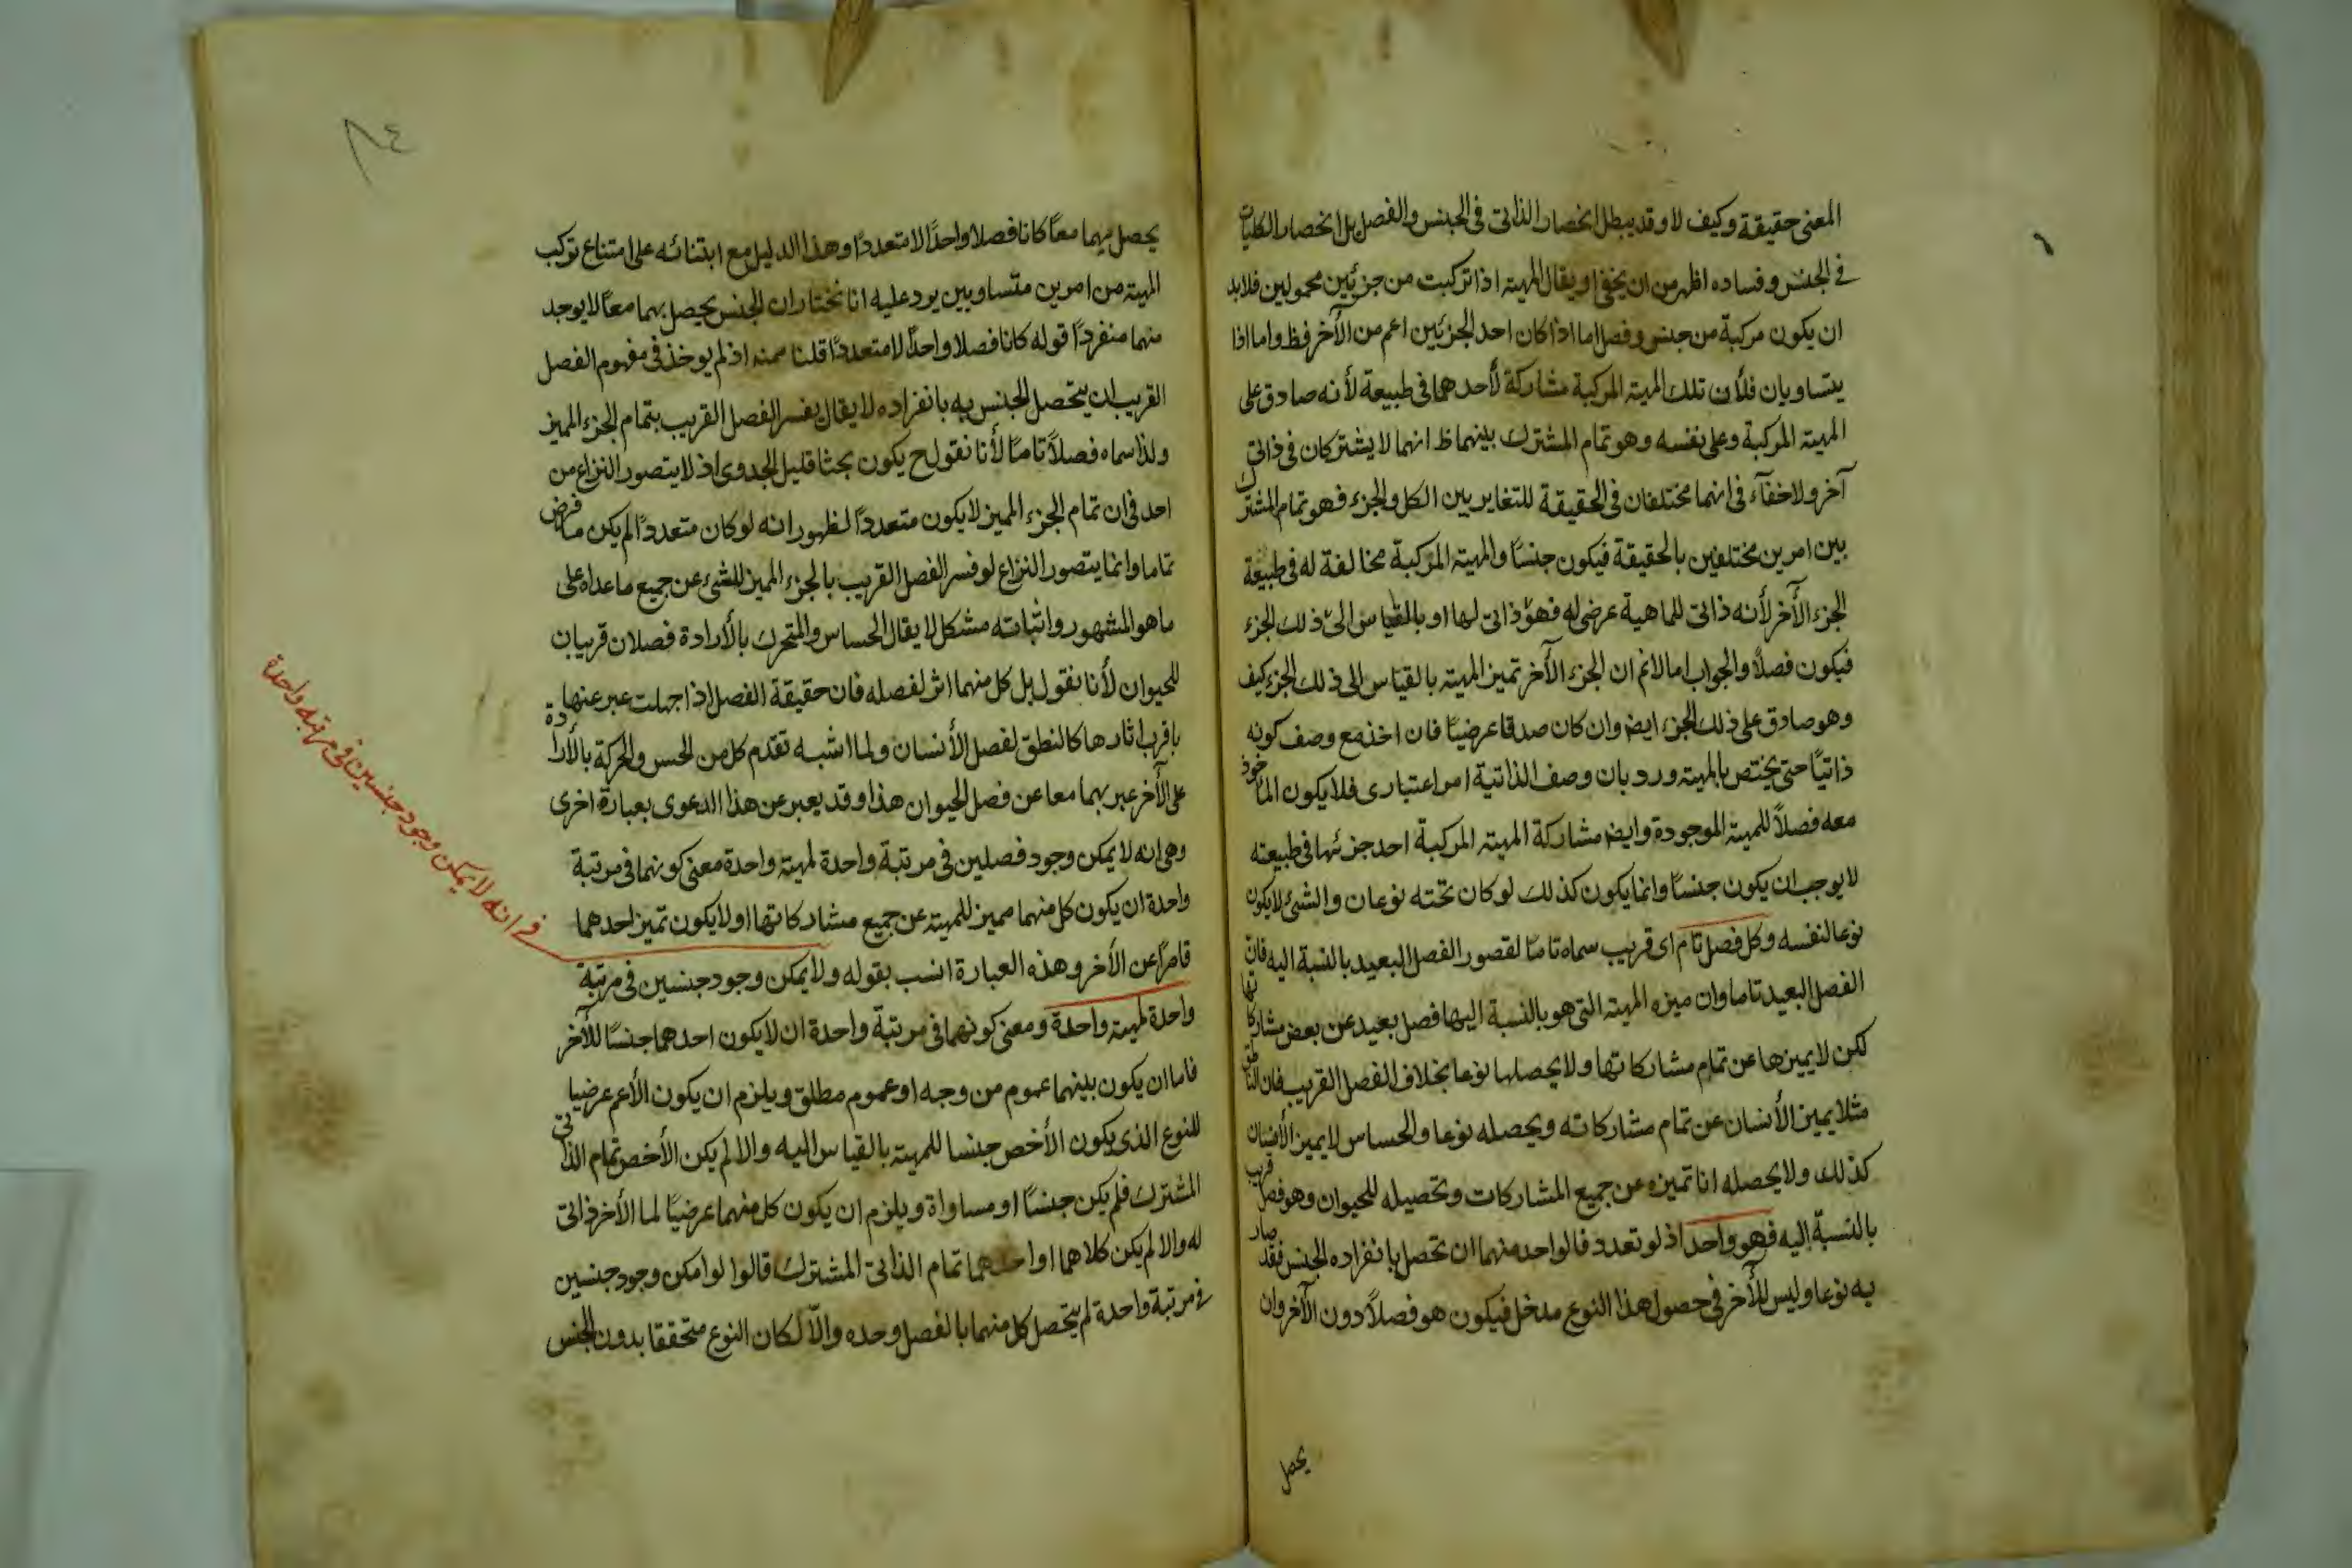 المعنى حقيقة وكيف لا وقد يبطل انحصار الذاتى فى الجنس والفصل بل انحصار الكليات
فى الجنس وفساده اظهر من ان يخفى او يقال المهية اذا تركبت من جزئين محمولين فلابد
ان يكون مركبة من جنس وفصل اما اذا كان احد الجزئين اعم من الآخر فظ واما اذا
يتساويان فلأن تلك المهية المركبة مشاركة لأحدهما فى طبيعة لأنه صادق على
المهية المركبة وعلى نفسه وهو تمام المشترك بينهما ظ انهما لا يشتركان فى ذاتى
آخر ولا خفآء فى انهما مختلفان فى الحقيقة للتغاير بين الكل والجزء فهو تمام المشترك
بين امرين مختلفين بالحقيقة فيكون جنسًا والمهية المركبة مخالفة له فى طبيعة
الجزء الآخر لأنه ذاتى للماهية عرضى له فهو ذاتى لها او بالقياس الى ذلك الجزء
فيكون فصلًا والجواب اما لانم ان الجزء الآخر تميز المهية بالقياس الى ذلك الجزء كيف
وهو صادق على ذلك الجزء ايض وان كان صدقا عرضيًا فان اخذ مع وصف كونه
ذاتيًا حتى يختص بالمهية ورد بان وصف الذاتية امر اعتبارى فلا يكون المأخوذ
معه فصلًا للمهية الموجودة وايض مشاركة المهية المركبة احد جزئها فى طبيعته
لا يوجب ان يكون جنسًا وانما يكون كذلك لو كان تحته نوعان والشئ لا يكون
نوعا لنفسه وكل فصل تام اى قريب سماه تامًا لقصور الفصل البعيد بالنسبة اليه فان
الفصل البعيد تاما وان ميزه المهية التى هو بالنسبة اليها فصل بعيد عن بعض مشاركاتها
لكن لا يميزها عن تمام مشاركاتها ولا يحصلها نوعا بخلاف الفصل القريب فان الناطق
مثلا يميز الأنسان عن تمام مشاركاته ويحصله نوعا والحساس لا يميز الأنسان
كذلك ولا يحصله انا تميزه عن جميع المشاركات وتحصيله للحيوان وهو فصل قريب
بالنسبة اليه فهو واحد اذ لو تعدد فالواحد منهما ان تحصل بانفراده الجنس فقد صار
به نوعا وليس للآخر فى حصول هذا النوع مدخل فيكون هو فصلًا دون الآخر وان
يحصل
٨٤
يحصل بهما معًا كانا فصلا واحدًا لا متعددًا وهذا الدليل مع ابتنائه على امتناع تركب
المهية من امرين متساويين يرد عليه انا نختار ان الجنس يحصل بهما معًا لا يوجد
منهما منفردًا قوله كانا فصلا واحدًا لا متعددًا قلنا ممنه اذ لم يوخذ فى مفهوم الفصل
القريب ان يتحصل الجنس به بانفراده لا يقال يفسر الفصل القريب بتمام الجزء المميز
ولذا سماه فصلًا تامًا لأنا نقول ح يكون بحثا قليل الجدوى اذ لا يتصور النزاع من
احد فى ان تمام الجزء المميز لا يكون متعددًا لظهور انه لو كان متعددًا لم يكن ما فرض
تماما وانما يتصور النزاع لو فسر الفصل القريب بالجزء المميز للشئ عن جميع ما عداه على
ما هو المشهور واثباته مشكل لا يقال الحساس والمتحرك بالأرادة فصلان قريبان
للحيوان لأنا نقول بل كل منهما اثر لفصله فان حقيقة الفصل اذا جهلت عبر عنها
باقرب اثارها كالنطق لفصل الأنسان ولما اشبه تقدم كل من الحس والحركة بالأرادة
على الآخر عبر بهما معا عن فصل الحيوان هذا وقد يعبر عن هذا الدعوى بعبارة اخرى
وهى انه لا يمكن وجود فصلين فى مرتبة واحدة لمهية واحدة معنى كونهما فى مرتبة
واحدة ان يكون كل منهما مميز للمهية عن جميع مشاركاتها او لا يكون تميز احدهما
قاصرًا عن الآخر وهذه العبارة انسب بقوله ولا يمكن وجود جنسين فى مرتبة
واحدة لمهية واحدة ومعنى كونهما فى مرتبة واحدة ان لا يكون احدهما جنسًا للآخر
فاما ان يكون بينهما عموم من وجه او عموم مطلق ويلزم ان يكون الأعم عرضيا
للنوع الذى يكون الأخص جنسا للمهية بالقياس اليه والا لم يكن الأخص تمام الذاتى
المشترك فلم يكن جنسًا او مساواة ويلزم ان يكون كل منهما عرضيًا لما الأخر ذاتى
له والا لم يكن كلاهما او احدهما تمام الذاتى المشترك قالوا لو امكن وجود جنسين
فى مرتبة واحدة لم يتحصل كل منهما بالفصل وحده والّا لكان النوع متحققا بدون الجنس
فى انه لا يمكن وجود جنسين فى مرتبة واحدة